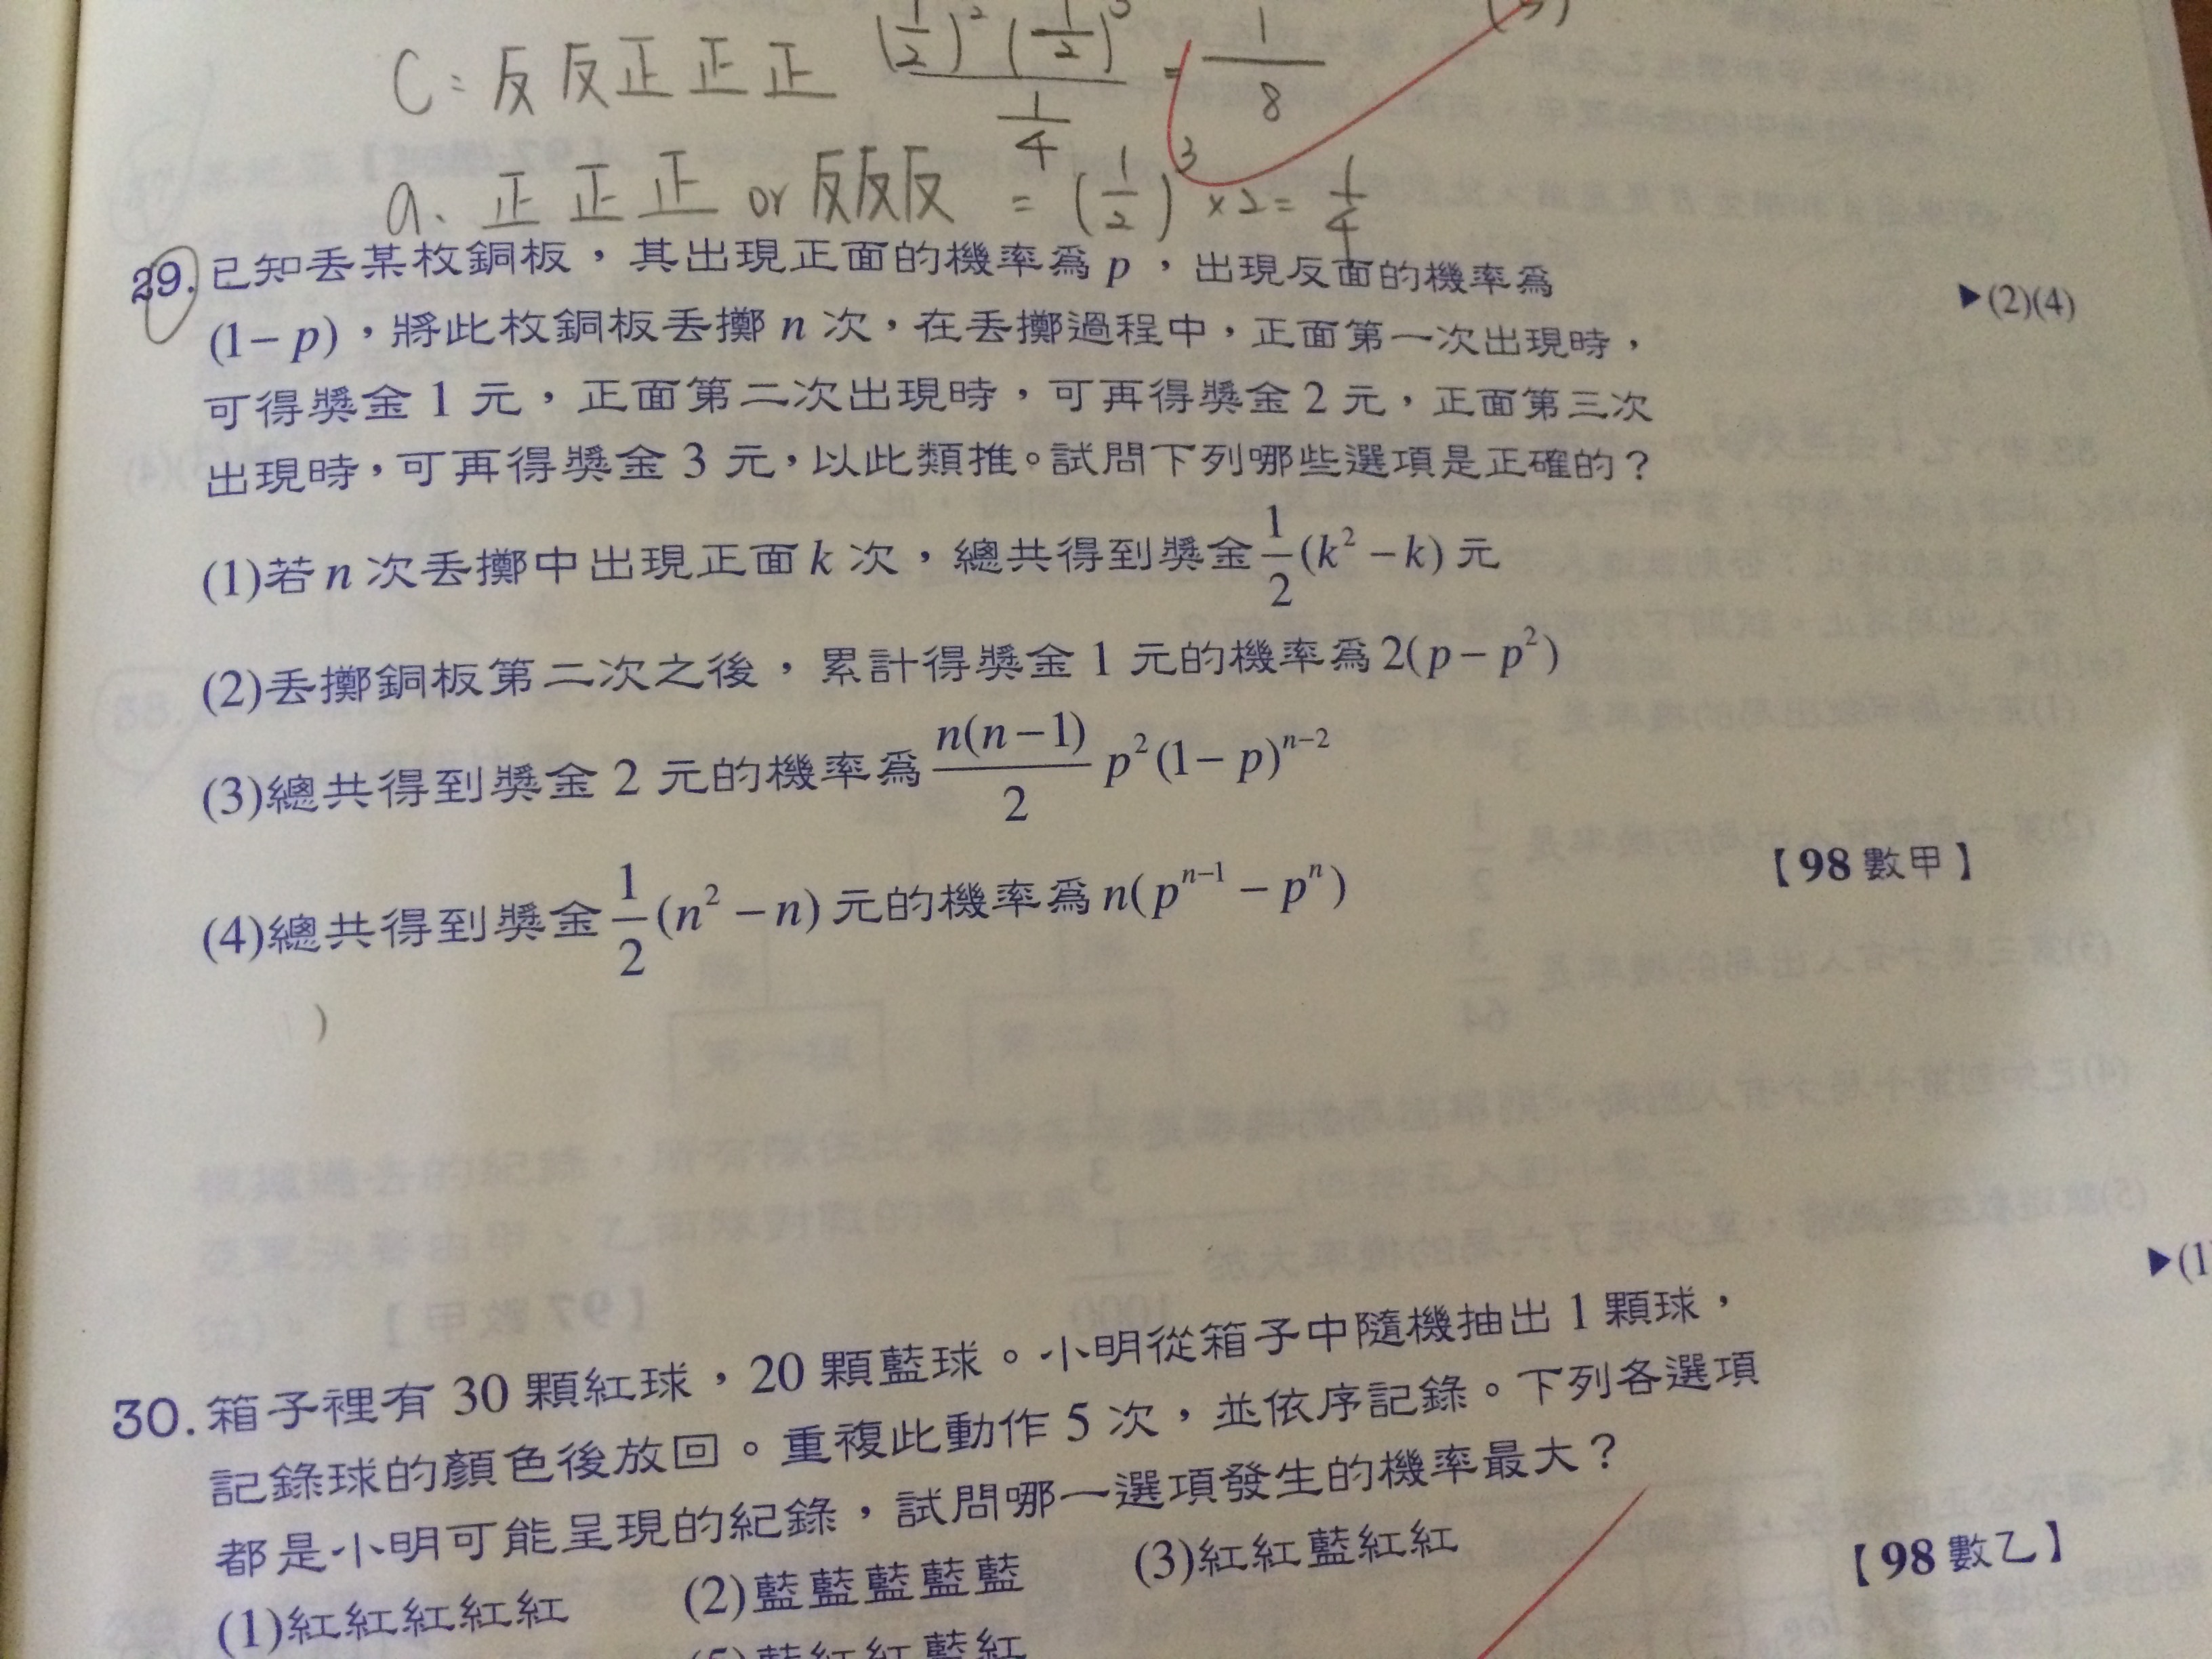 C = 反反正正正 (1/2)² (1/2)³ / 1/4 = 1/8
a、正正正 or 反反反 = (1/2)³ × 2 = 1/4
29. 已知丟某枚銅板，其出現正面的機率為 p ，出現反面的機率為
▶(2)(4)
(1－p)，將此枚銅板丟擲 n 次，在丟擲過程中，正面第一次出現時，
可得獎金 1 元，正面第二次出現時，可再得獎金 2 元，正面第三次
出現時，可再得獎金 3 元，以此類推。試問下列哪些選項是正確的？
(1)若 n 次丟擲中出現正面 k 次，總共得到獎金 1/2 (k² － k) 元
(2)丟擲銅板第二次之後，累計得獎金 1 元的機率為 2(p － p²)
(3)總共得到獎金 2 元的機率為 n(n－1)/2 p²(1－p)ⁿ⁻²
(4)總共得到獎金 1/2 (n² － n) 元的機率為 n(pⁿ⁻¹ － pⁿ)
【98 數甲】
▶(1)
30. 箱子裡有 30 顆紅球，20 顆藍球。小明從箱子中隨機抽出 1 顆球，
記錄球的顏色後放回。重複此動作 5 次，並依序記錄。下列各選項
都是小明可能呈現的紀錄，試問哪一選項發生的機率最大？
(1)紅紅紅紅紅 (2)藍藍藍藍藍 (3)紅紅藍紅紅
【98 數乙】
(5)藍紅紅藍紅